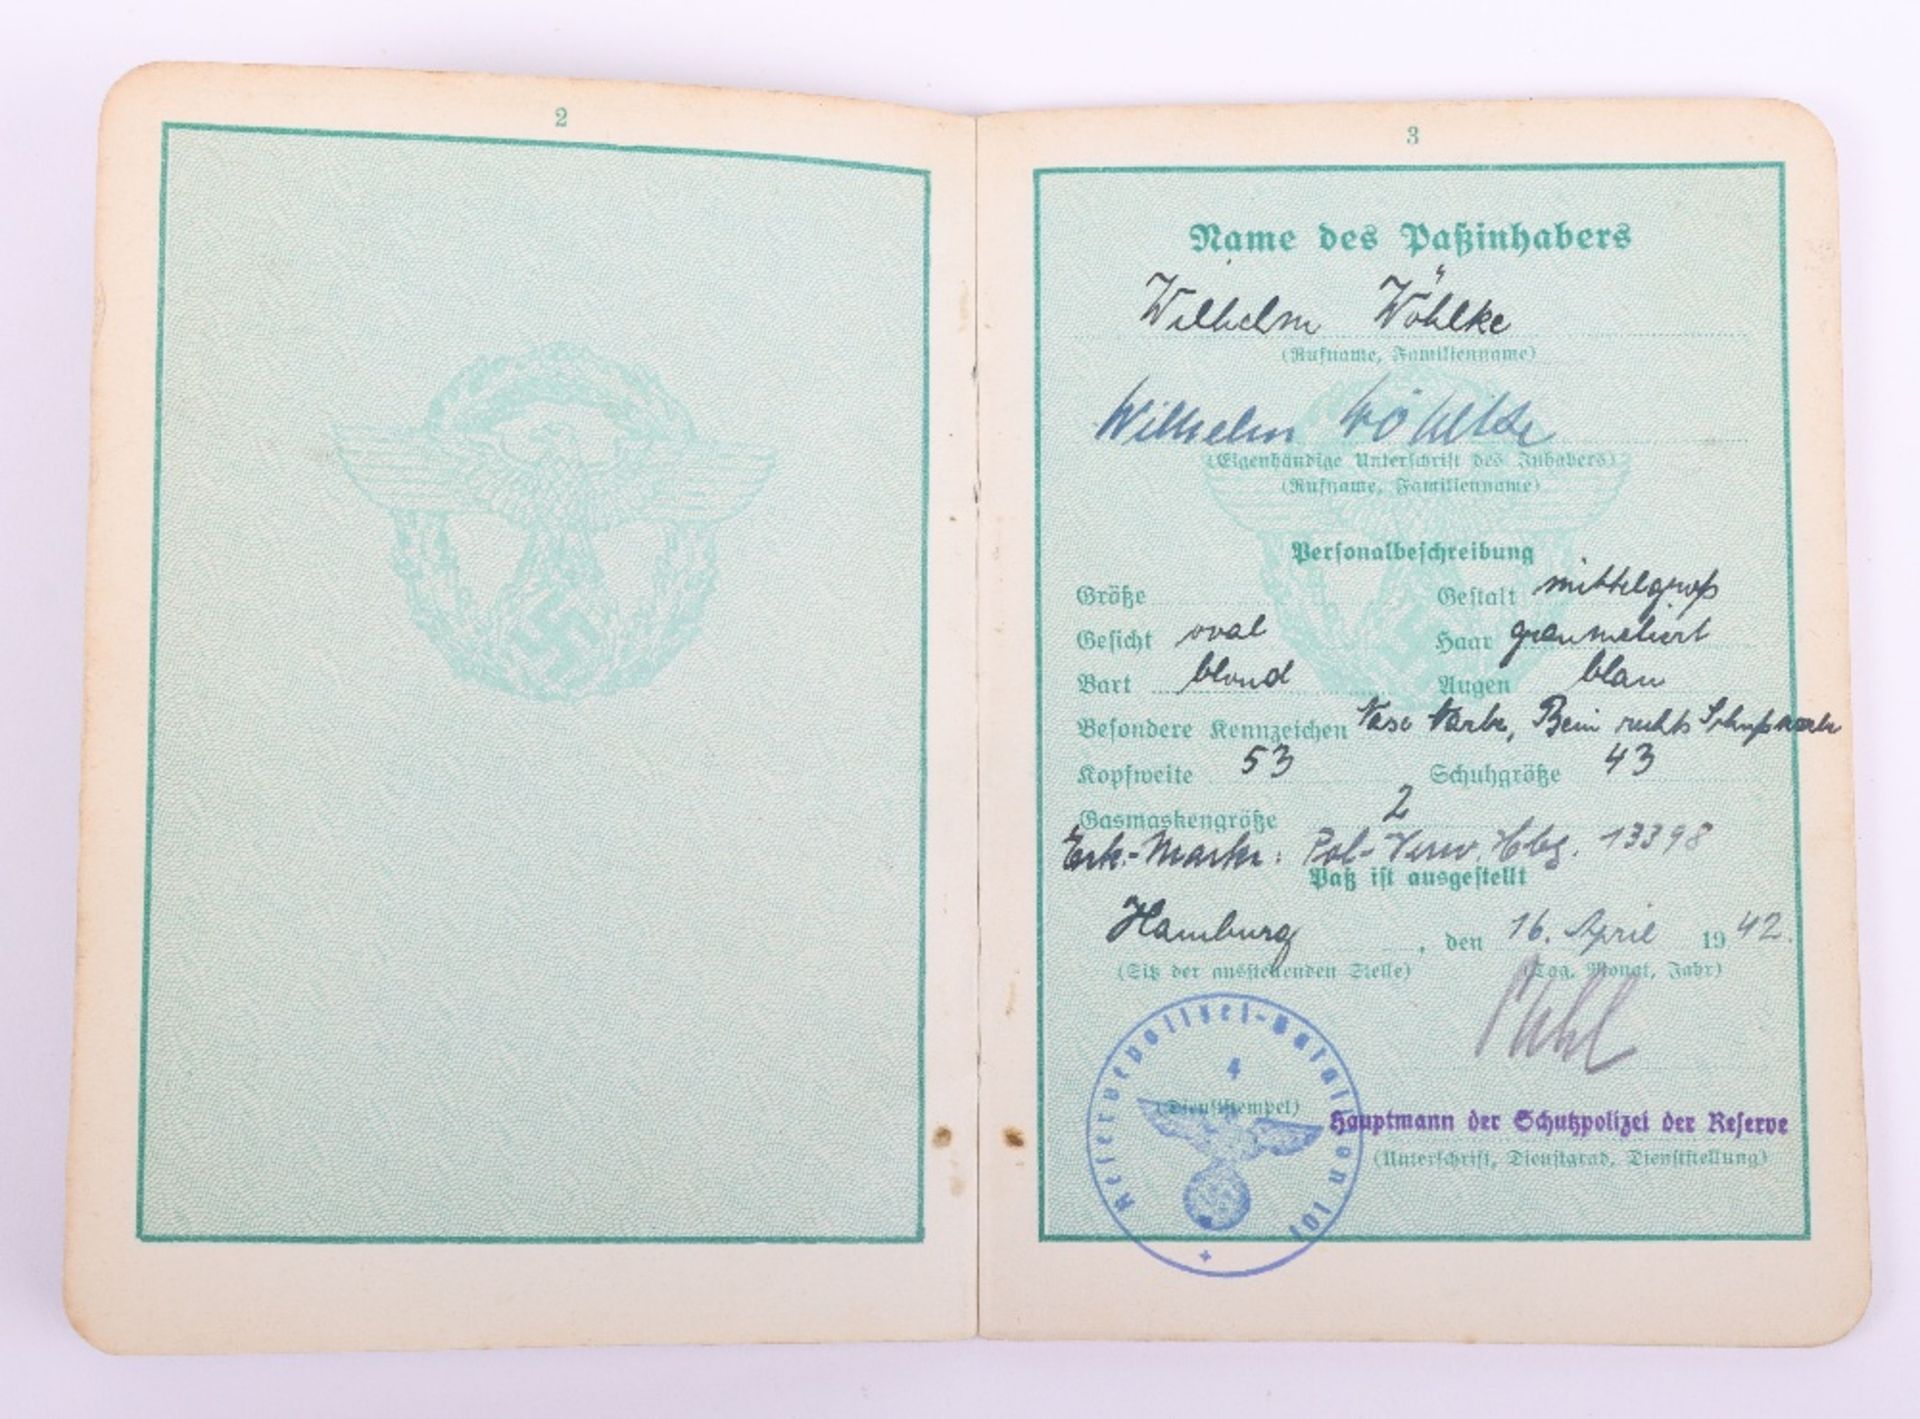 2
3
Name des Paßinhabers
Wilhelm Wöhlke
(Rufname, Familienname)
Wilhelm Wöhlke
(Eigenhändige Unterschrift des Inhabers)
(Rufname, Familienname)
Personalbeschreibung
Größe Gestalt mittelgroß
Gesicht oval Haar graumeliert
Bart blond Augen blau
Besondere Kennzeichen Nase Narbe, Bein rechts Schußnarbe
Kopfweite 53 Schuhgröße 43
Gasmaskengröße 2
Erk.-Marke: Pol-Verw. Hbg. 13398
Paß ist ausgestellt
Hamburg, den 16. April 1942.
(Sitz der ausstellenden Stelle) (Tag, Monat, Jahr)
Reservepolizei-Bataillon 101
4
(Dienststempel)
Hauptmann der Schutzpolizei der Reserve
(Unterschrift, Dienstgrad, Dienststellung)